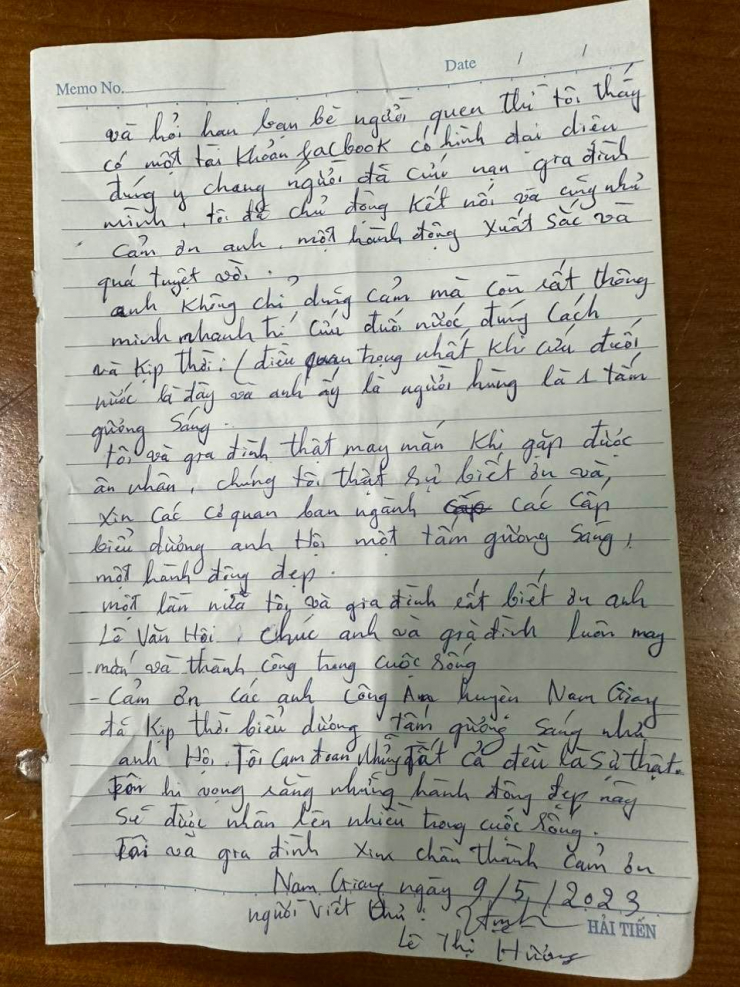 Date / /
Memo No.
và hỏi han bạn bè người quen thì tôi thấy
có một tài khoản facbook có hình đại diện
đúng y chang người đã cứu nạn gia đình
mình, tôi đã chủ động kết nối và cũng như
cảm ơn anh, một hành động xuất sắc và
quá tuyệt vời.
anh không chỉ dũng cảm mà còn rất thông
minh nhanh trí cứu đuối nước đúng cách
và kịp thời: (điều quan trọng nhất khi cứu đuối
nước là đây và anh ấy là người hùng là 1 tấm
gương sáng.
tôi và gia đình thật may mắn khi gặp được
ân nhân, chúng tôi thật sự biết ơn và,
xin các cơ quan ban ngành các cấp
biểu dương anh Hội một tấm gương sáng,
một hành động đẹp.
một lần nữa tôi và gia đình rất biết ơn anh
Lê Văn Hội, chúc anh và gia đình luôn may
mắn và thành công trong cuộc sống
- Cảm ơn các anh Công An huyện Nam Giang
đã kịp thời biểu dương tấm gương sáng như
anh Hội. Tôi cam đoan tất cả đều là sự thật.
Tôi hi vọng rằng những hành động đẹp này
sẽ được nhân lên nhiều trong cuộc sống.
Tôi và gia đình xin chân thành cảm ơn
Nam Giang ngày 9/5/2023
người viết thư:
HẢI TIẾN
Lê Thị Hương